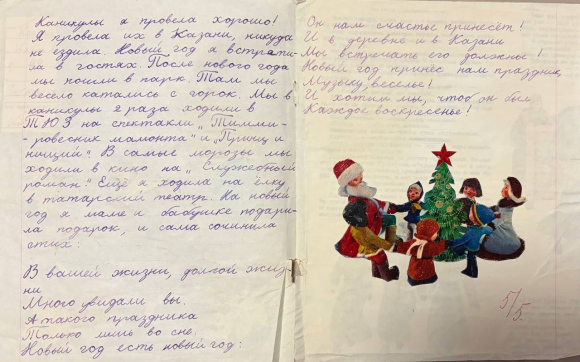 Каникулы я провела хорошо!
Я провела их в Казани, никуда
не ездила. Новый год я встрети-
ла в гостях. После нового года
мы пошли в парк. Там мы
весело катались с горок. Мы в
каникулы 2 раза ходили в
ТЮЗ на спектакли „Тимми-
-ровесник мамонта" и „Принц и
нищий". В самые морозы мы
ходили в кино на „Служебный
роман". Ещё я ходила на ёлку
в татарский театр. На новый
год я маме и бабушке подари-
ла подарок, и сама сочинила
стих:
В вашей жизни, долгой жиз-
ни
Много увидали вы.
А такого праздника
Только лишь во сне.
Новый год есть новый год:
Он нам счастье принесёт!
И в деревне и в Казани
Мы встречать его должны!
Новый год принёс нам праздник,
Музыку, веселье!
И хотим мы, чтоб он был
Каждое воскресенье!
5/5